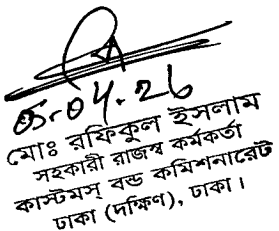 ০৫.০৪.২৬
মোঃ রফিকুল ইসলাম
সহকারী রাজস্ব কর্মকর্তা
কাস্টমস্ বন্ড কমিশনারেট
ঢাকা (দক্ষিণ), ঢাকা।